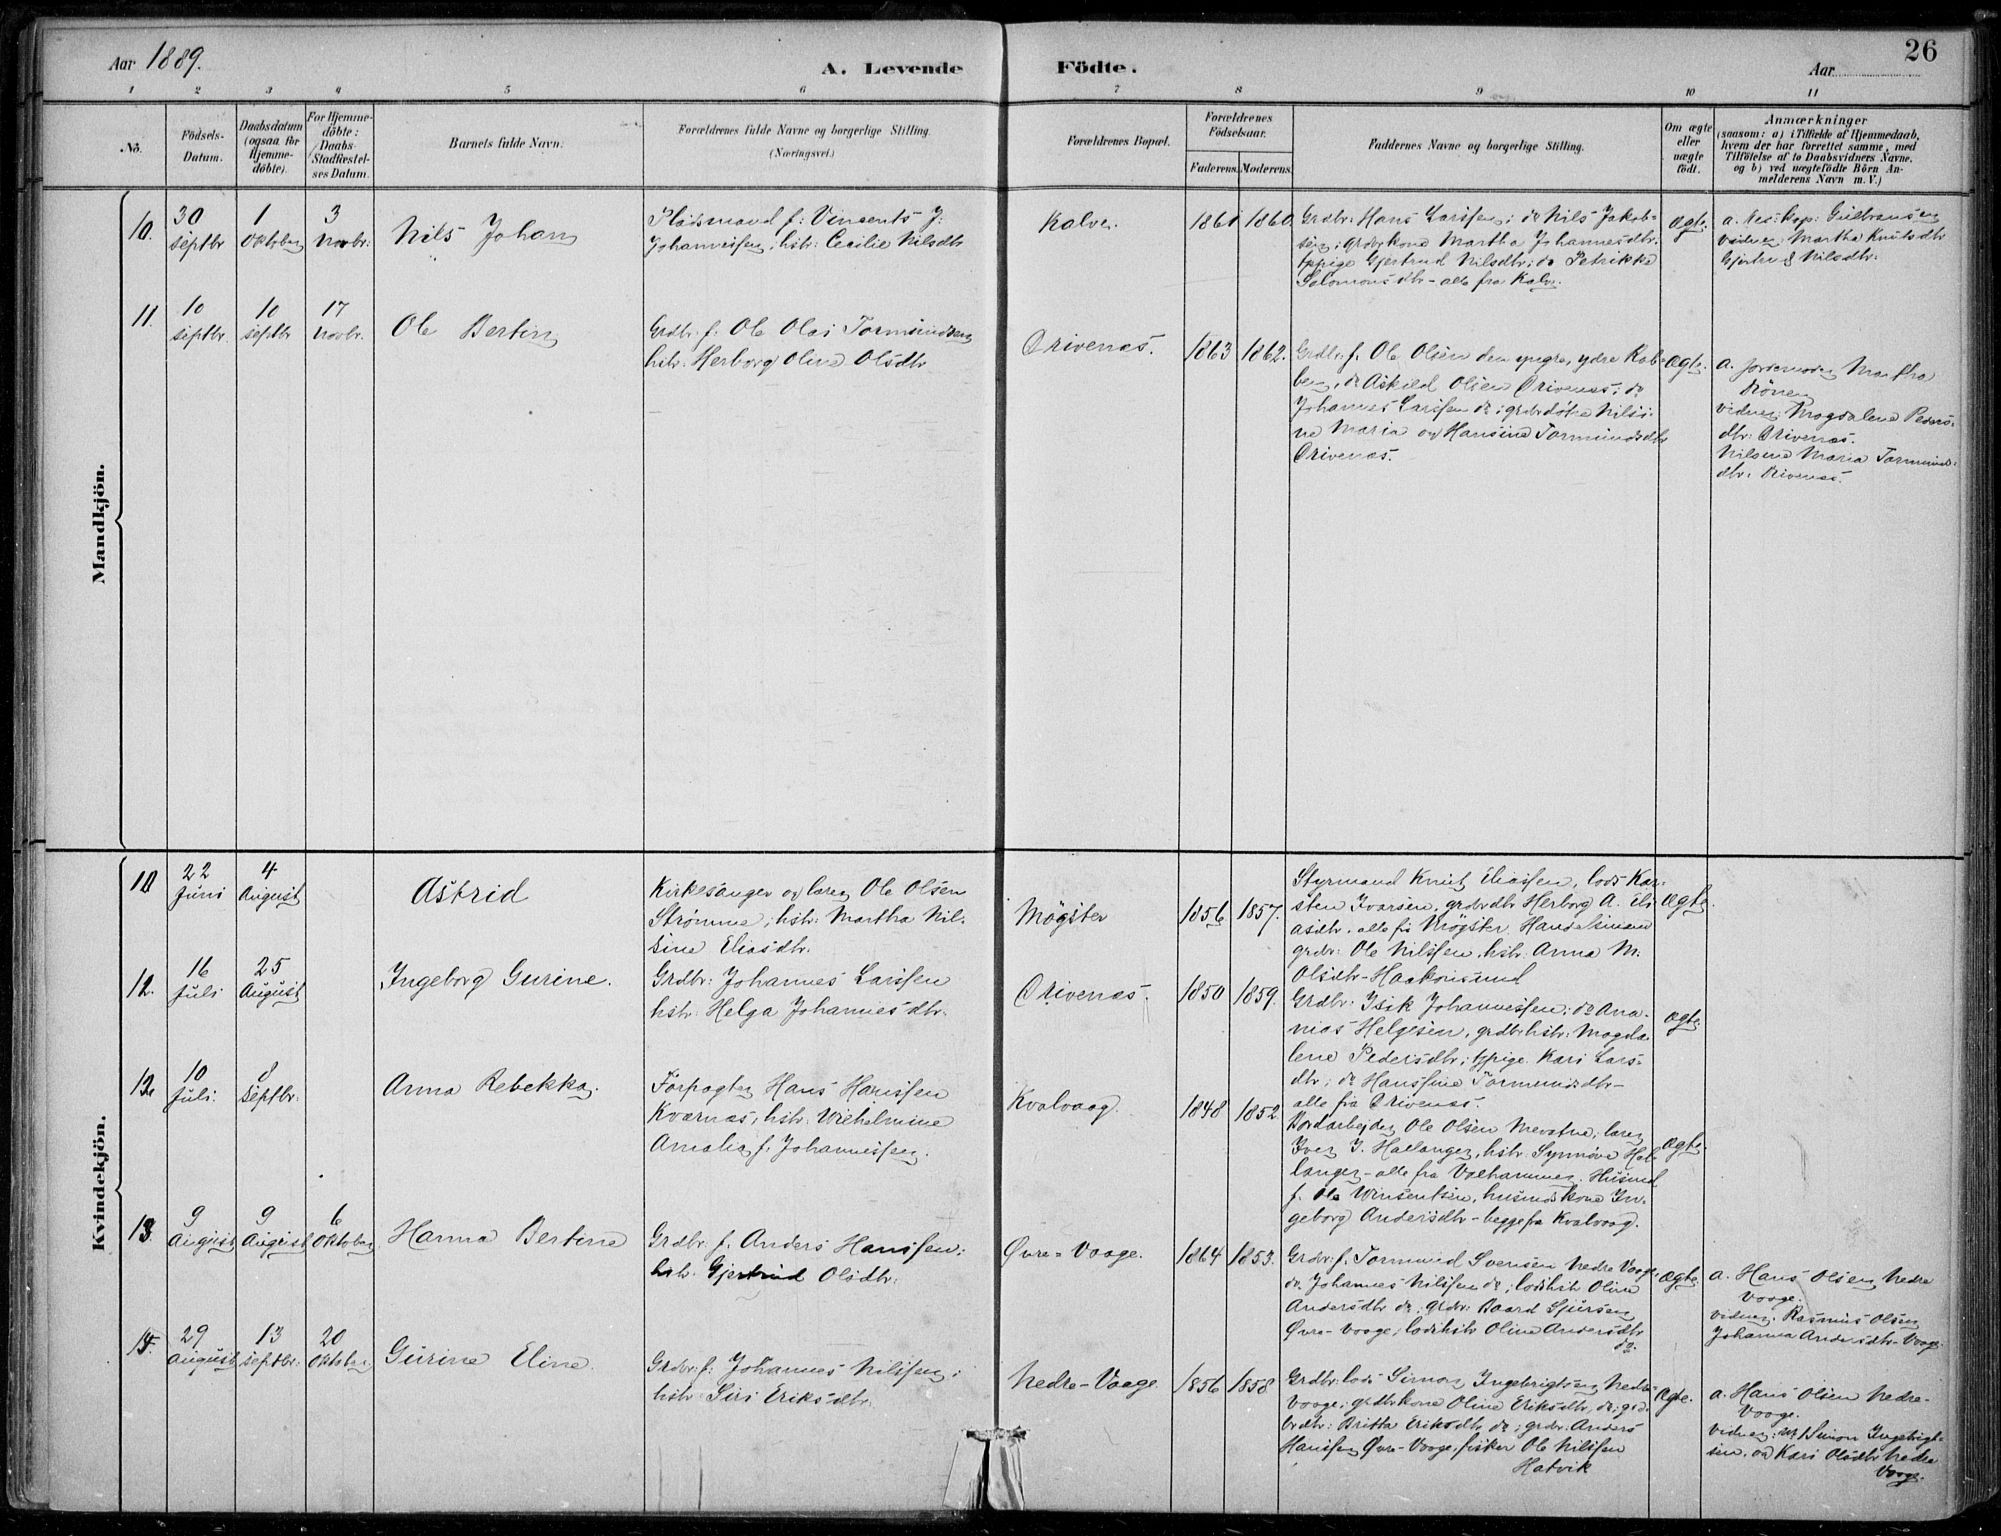 Aar 1889.
A. Levende Födte.
Aar
26
1 2 3 4 5 6 7 8 9 10 11
No.
Födsels-
Datum.
Daabsdatum
(ogsaa for
Hjemme-
döbte).
For Hjemme-
döbte:
Daabs-
Stadfæstel-
ses Datum.
Barnets fulde Navn.
Forældrenes fulde Navne og borgerlige Stilling.
(Næringsvei.)
Forældrenes Bopæl.
Forældrenes
Födselsaar.
Faderens. Moderens.
Faddernes Navne og borgerlige Stilling.
Om ægte
eller
uægte
födt.
Anmærkninger
(saasom: a) i Tilfælde af Hjemmedaab,
hvem der har forrettet samme, med
Tilföielse af to Daabsvidners Navne.
og b) ved uægtefödte Börn An-
melderens Navn m. V.)
Mandkjön.
10.
30
Septbr
1
Oktober
3
Novbr.
Nils Johan
Pladsmand f: Vincents J:
Johannessen, hstr: Cecilie Nilsdtr
Kalve.
1861 1860.
Grdbr: Hans Larssen; do Nils Jakob-
sen; grdbrkone Martha Johannesdtr.
tppige Gjertrud Nilsdtr; do Petrikke
Salomonsdtr - alle fra Kalve.
Ægte.
a. res: kap: Gulbransen
vidner Martha Knutsdtr
Nilsdtr.
11.
10
Septbr.
10
Septbr
17
Novbr.
Ole Bertin
Grdbr. f. Ole Olai Tormundsen
hstr. Herborg Oline Olsdtr
Drivenæs.
1863 1862.
Grdbr. f. Ole Olsen den yngre, ydre
do Askild Olsen Drivenæs; do
Johannes Larssen do; grdbrdøtre Nilsi-
ne Maria og Hansine Tormundsdtr
Drivenæs.
Ægte.
a. jordemoder Martha
vidner Magdalene Peders-
dtr: Drivenæs.
Nilsine Maria Tormunds-
dtr. Drivenæs.
Kvindekjön.
22
Juni
4
August
Astrid
Kirkesanger og lærer Ole Olsen
Strømme, hstr: Martha Nil-
sine Eliasdtr.
Møgster
1856 1857.
Styrmand Knut Eliassen, lods Kar-
sten Ivarsen, grdbrdtr Herborg A. Eli-
asdtr. alle fra Møgster. Handelsmand
grdbr: Ole Nilssen, hstr. Anna M.
Olsdtr - Haakonsund
Ægte.
12.
16
Juli
25
August
Ingeborg Gurine.
Grdbr: Johannes Larssen
hstr: Helga Johannesdtr.
Drivenæs.
1850 1859.
Grdbr: Isak Johannessen; do Ana-
nias Helgesen, grdbrhstr: Magda-
lene Pedersdtr; tppige Kari Lars-
dtr; do Hanssine Tormundsdtr -
alle fra Drivenæs.
Ægte.
10
Juli.
8
Septbr:
Anna Rebekka.
Forpagter Hans Hanssen
Kvarnæs, hstr: Wilhelmine
Amalia f. Johannessen.
Kvalvaag.
1848 1852.
Ole Olsen Mevatne, lærer
Iver I. Hallanger, hstr. Synnøve Hal-
langer - alle fra Valhammer. Husmd
f. Ole Winsentsen, husmdskone In-
geborg Andersdtr - begge fra Kvalvaag.
Ægte.
13.
9
August
9
August
6
Oktober
Hanna Bertine
Grdbr. f. Anders Hanssen:
hstr. Gjertrud Olsdtr:
Øvre-Vaage.
1864 1853.
Grdbr: f. Tormund Svensen Nedre Vaage,
do. Johannes Nilssen do; lodshstr Oline
Andersdtr do; grdbr: Baard Sjursen
Øvre-Vaage; lodshstr Oline Andersdtr
do.
Ægte.
a. Hans Olsen Nedre
Vaage.
vidner. Rasmus Olsen
Johanna Andersdtr - Vaage.
29
August
13
Septbr:
20
Oktober
Gurine Eline.
Grdbr: f: Johannes Nilssen;
hstr Siri Eriksdtr.
Nedre-Vaage.
1856 1858
Grdbr: lods Simon Ingebrigtsen Nedre-
Vaage; grdbrkone Oline Eriksdtr, do; grd-
brdtr: Britta Eriksdtr do; grdbr: Anders
Hanssen Øvre-Vaage, fisker Ole Nilssen
Hatvik
Ægte.
a. Hans Olsen Nedre-
Vaage.
vidner: Simon Ingebrigt-
sen, og Kari Olsdtr Nedre
Vaage.